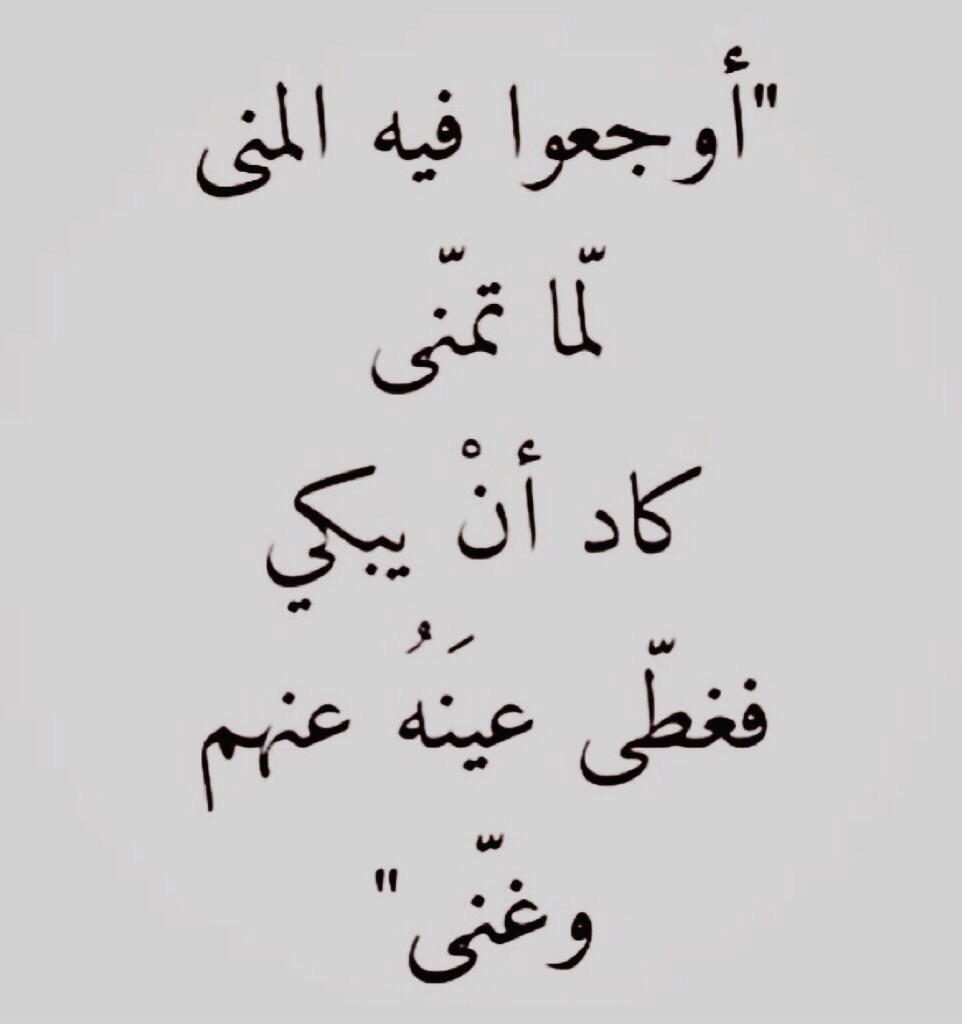 "أوجعوا فيه المنى
لمّا تمنّى
كاد أنْ يبكي
فغطّى عينَهُ عنهم
وغنّى"